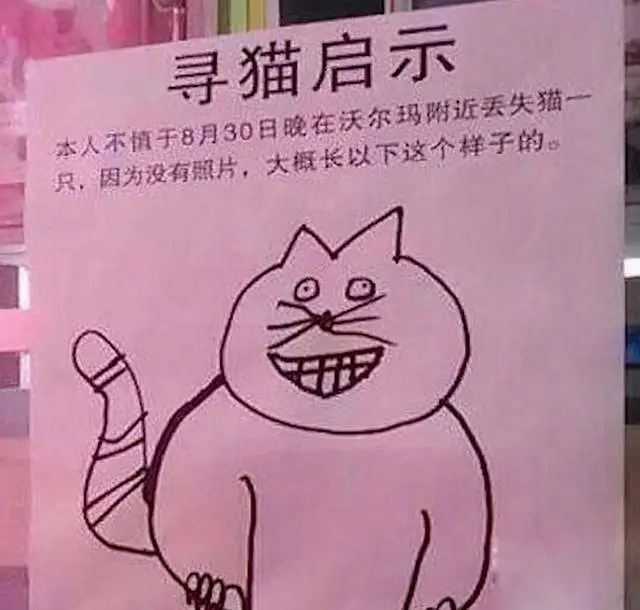 寻猫启示
本人不慎于8月30日晚在沃尔玛附近丢失猫一
只，因为没有照片，大概长以下这个样子的。